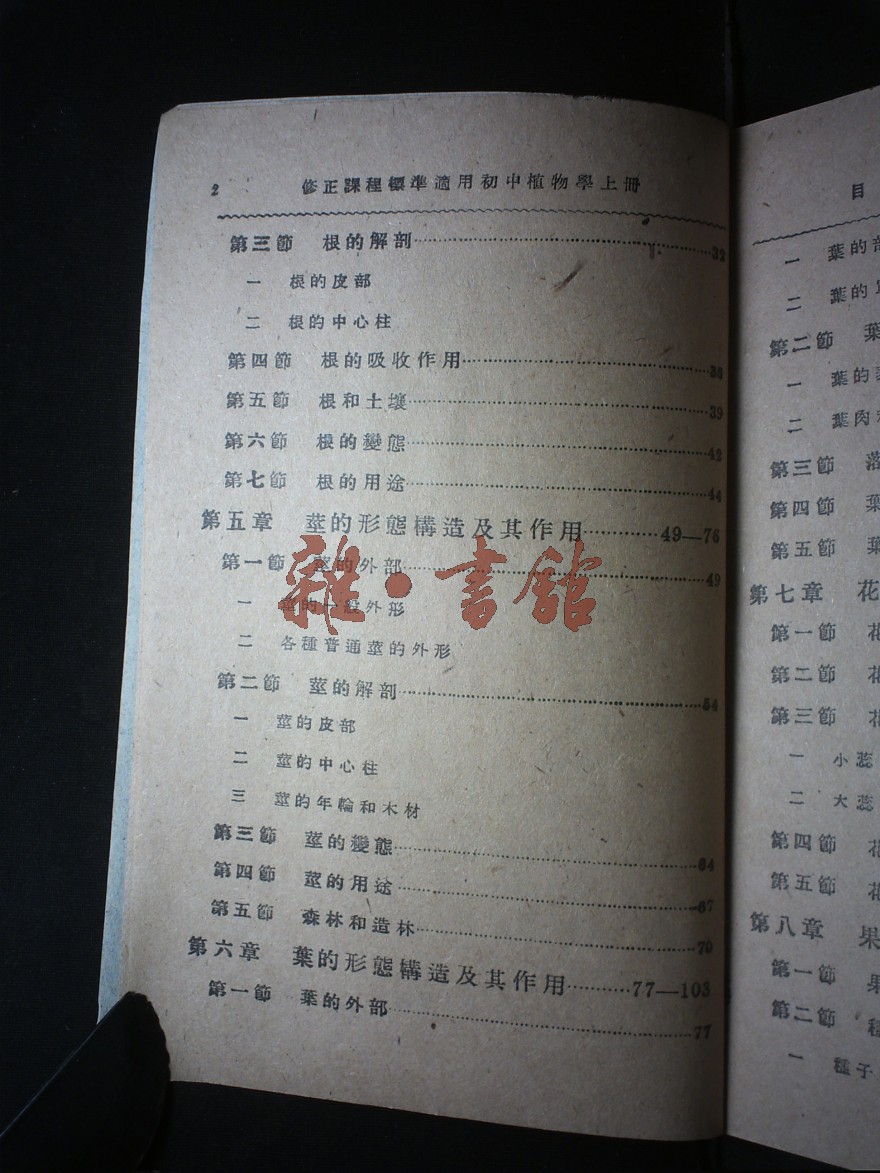 2 修正課程標準適用初中植物學上冊
第三節 根的解剖……32
一 根的皮部
二 根的中心柱
第四節 根的吸收作用……36
第五節 根和土壤……39
第六節 根的變態……42
第七節 根的用途……44
第五章 莖的形態構造及其作用……49—76
第一節 莖的外部……49
一 莖的一般外形
二 各種普通莖的外形
第二節 莖的解剖……54
一 莖的皮部
二 莖的中心柱
三 莖的年輪和木材
第三節 莖的變態……64
第四節 莖的用途……67
第五節 森林和造林……70
第六章 葉的形態構造及其作用……77—103
第一節 葉的外部……77
雜·書館
目
一 葉的
二 葉的
第二節 葉
一 葉的
二 葉肉
第三節 落
第四節 葉
第五節 葉
第七章 花
第一節 花
第二節 花
第三節 花
一 小蕊
二 大蕊
第四節 花
第五節 花
第八章 果
第一節 果
第二節 種
一 種子